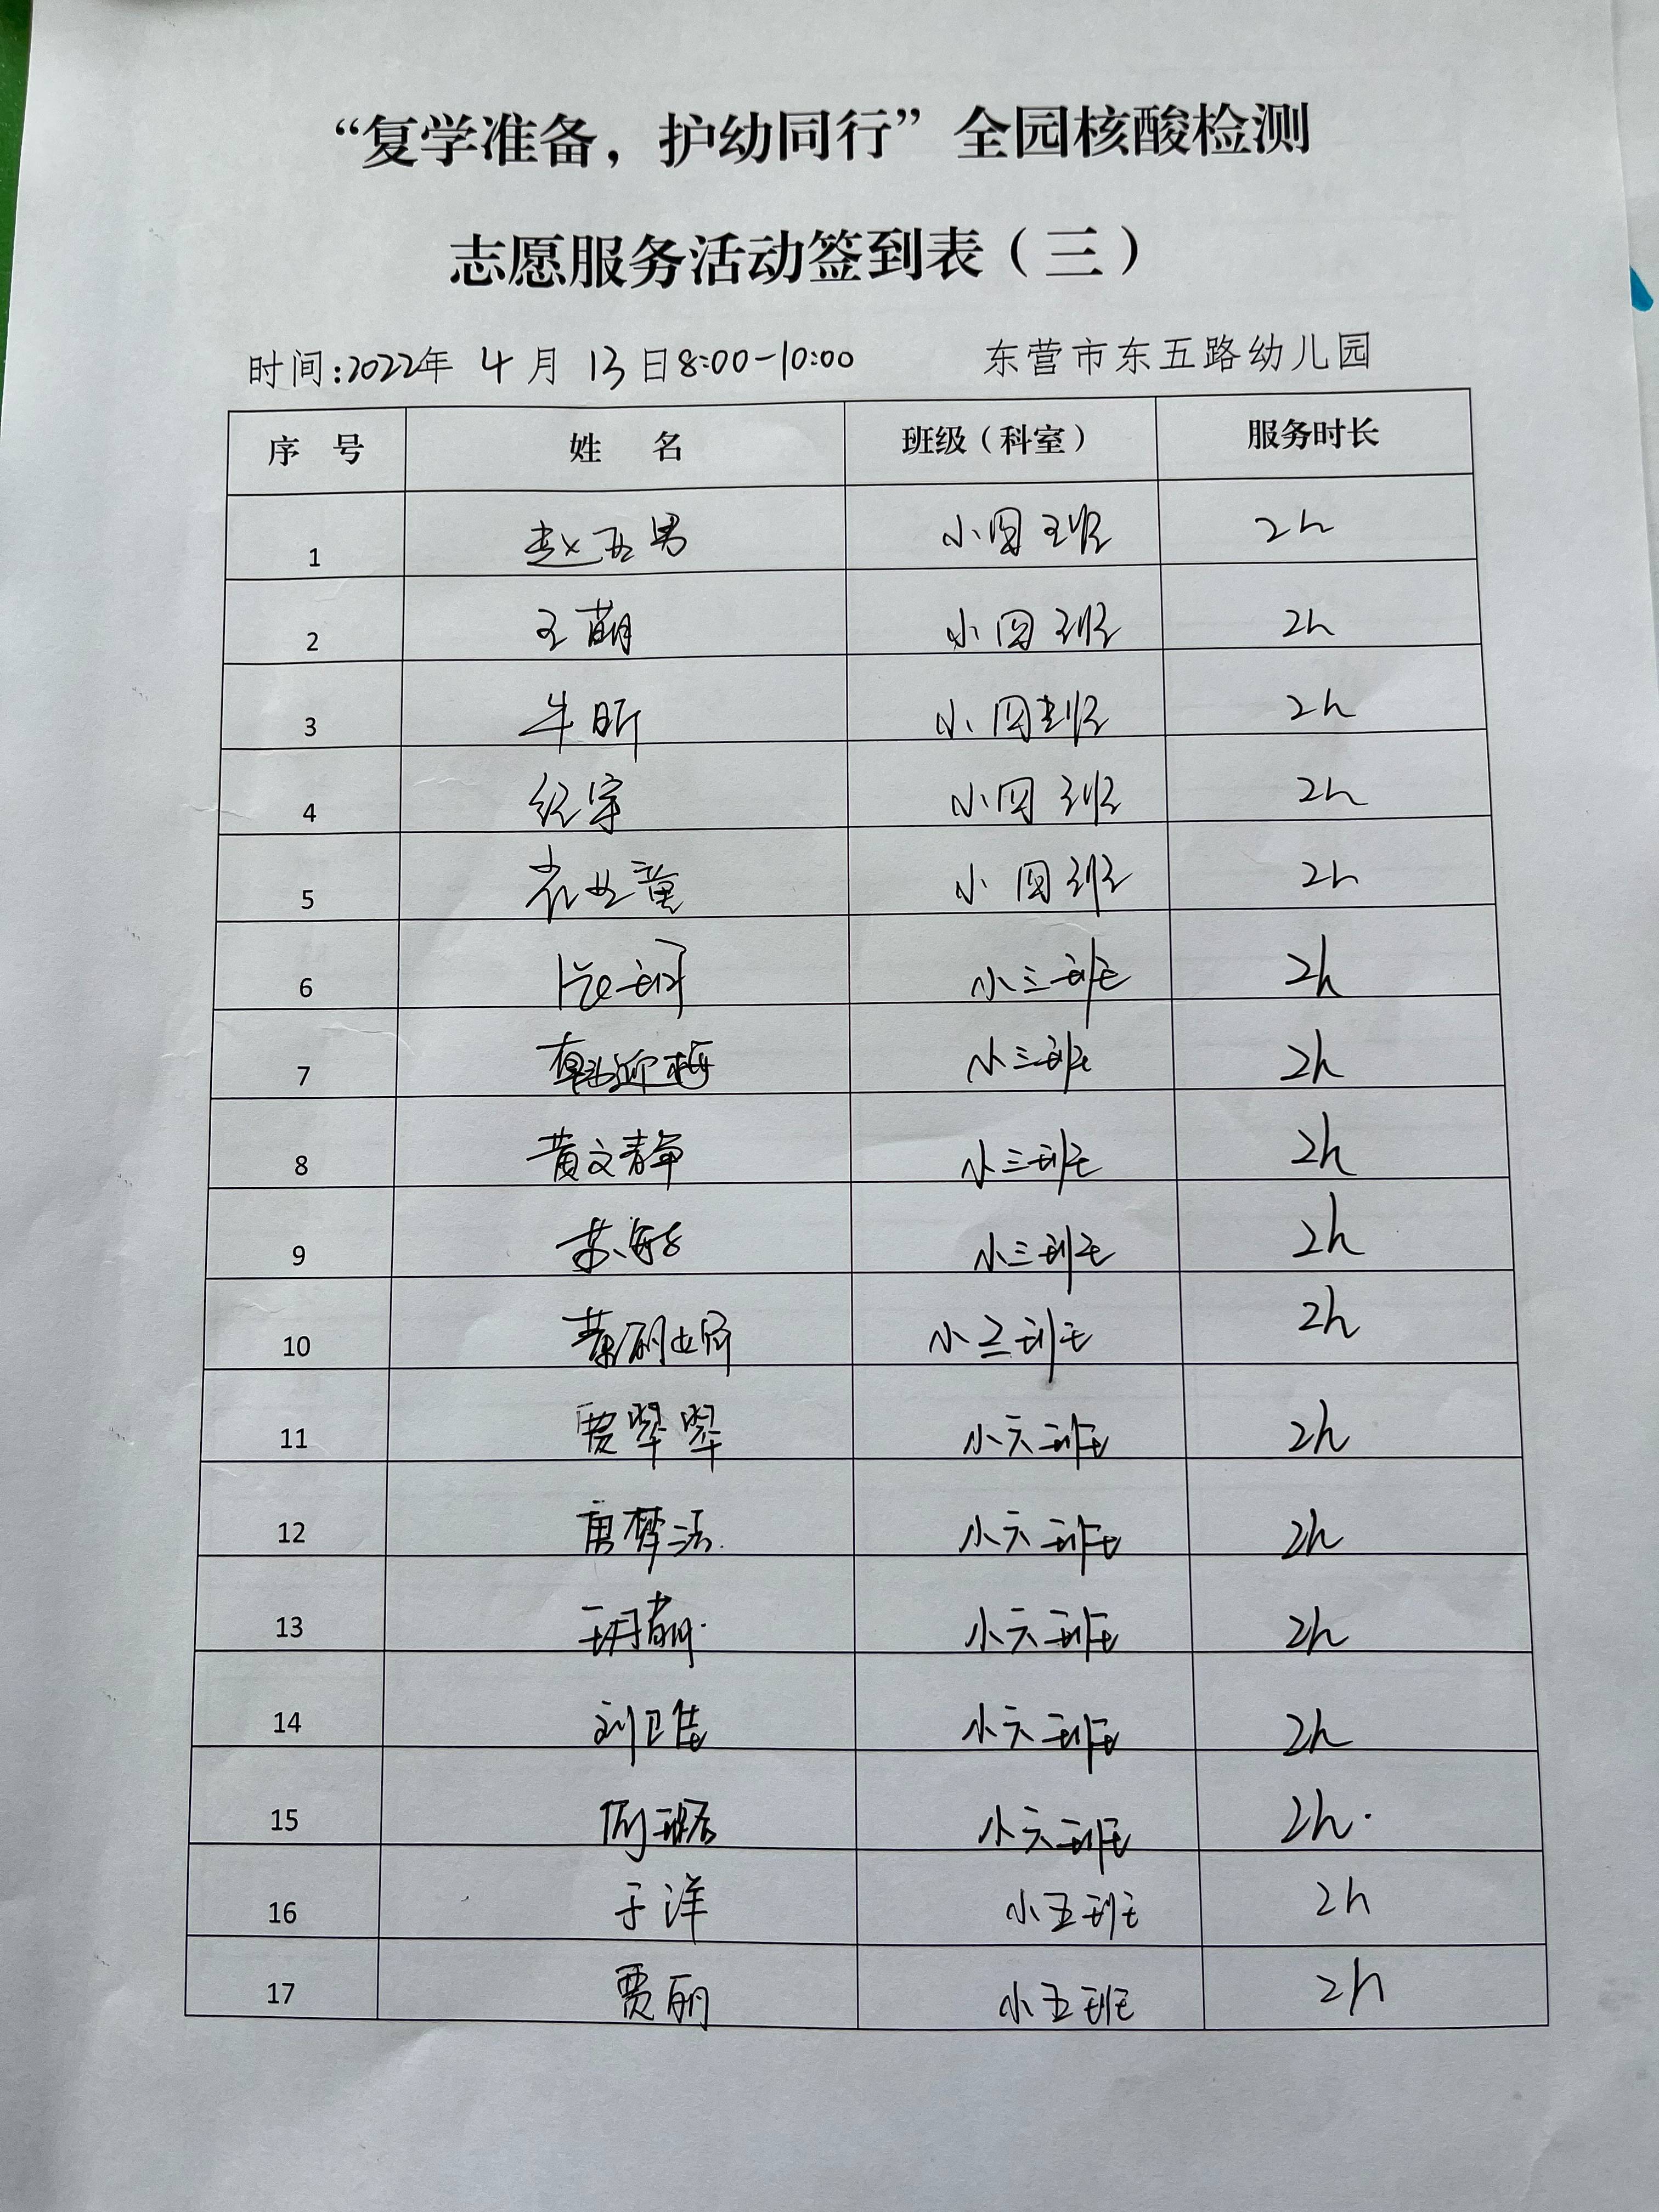 “复学准备，护幼同行”全园核酸检测
志愿服务活动签到表（三）
时间:2022年 4 月 13 日8:00-10:00 东营市东五路幼儿园
序 号 姓 名 班级（科室） 服务时长
1 赵五男 小四班 2h
2 王萌 小四班 2h
3 牛昕 小四班 2h
4 纪宇 小四班 2h
5 小四班 2h
6 小三班 2h
7 韩迎梅 小三班 2h
8 黄文静 小三班 2h
9 小三班 2h
10 小三班 2h
11 贾翠翠 小六班 2h
12 唐梦洁 小六班 2h
13 小六班 2h
14 刘卫佳 小六班 2h
15 小六班 2h
16 于洋 小五班 2h
17 贾丽 小五班 2h